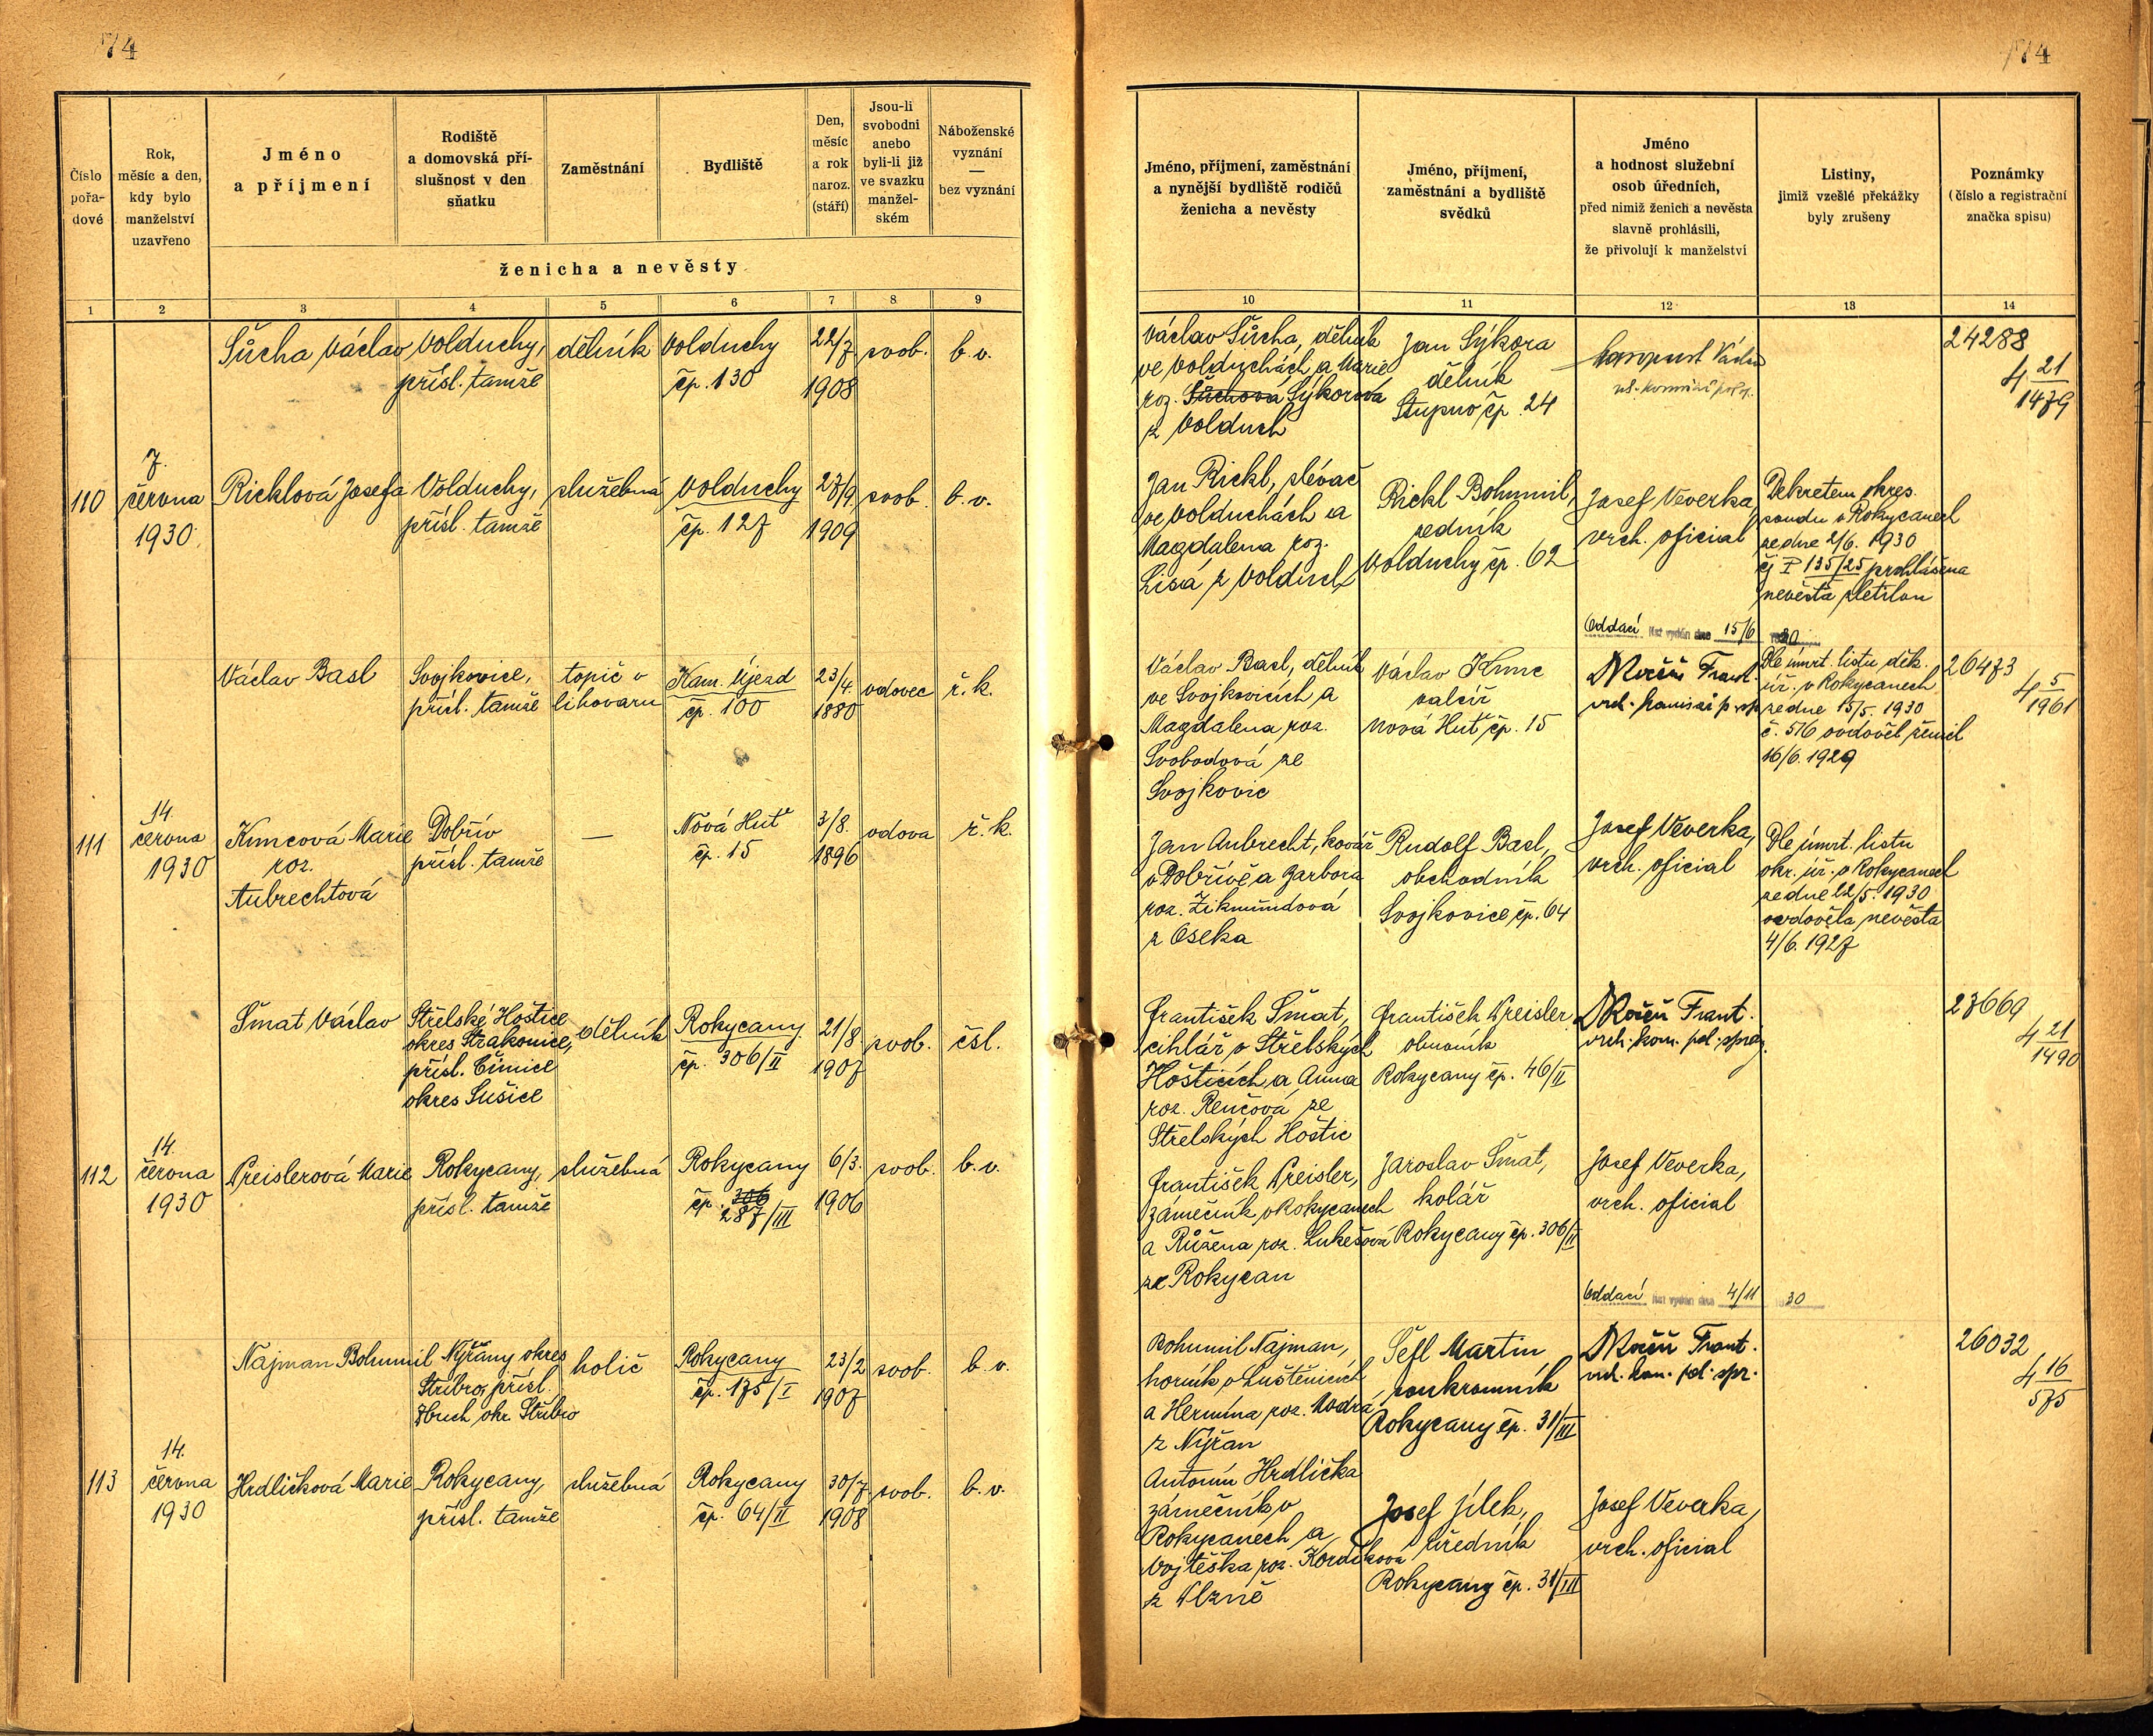 74
74
Číslo pořa-dové
Rok, měsíc a den, kdy bylo manželství uzavřeno
Jméno a příjmení
Rodiště a domovská pří-slušnost v den sňatku
Zaměstnání
Bydliště
Den, měsíc a rok naroz. (stáří)
Jsou-li svobodni anebo byli-li již ve svazku manžel-ském
Náboženské vyznání — bez vyznání
ženicha a nevěsty
1 2 3 4 5 6 7 8 9
Šůcha Václav
Volduchy,
přísl. tamže
dělník
Volduchy
čp. 130
22/7
1908
svob.
b. v.
110
7.
června
1930
Ricklová Josefa
Volduchy,
přísl. tamže
služebná
Volduchy
čp. 127
27/9.
1909
svob.
b. v.
Václav Basl
Svojkovice,
přísl. tamže
topič v
lihovaru
Kam. Újezd
čp. 100
23/4.
1880
vdovec
ř. k.
111
14.
června
1930
Kuncová Marie
roz.
Aubrechtová
Dobřív
přísl. tamže
—
Nová Huť
čp. 15
3/8.
1896
vdova
ř. k.
Šmat Václav
Střelské Hoštice
okres Strakonice,
přísl. Čimice
okres Sušice
dělník
Rokycany
čp. 306/II
21/8
1907
svob.
čsl.
112
14.
června
1930
Preislerová Marie
Rokycany,
přísl. tamže
služebná
Rokycany
čp. 306
287/III
6/3.
1906
svob.
b. v.
Najman Bohumil
Nýřany okres
Stříbro, přísl.
Zbuch okr. Stříbro
holič
Rokycany
čp. 175/I
23/2
1907
svob.
b. v.
113
14.
června
1930
Hrdličková Marie
Rokycany,
přísl. tamže
služebná
Rokycany
čp. 64/II
30/7
1908
svob.
b. v.
Jméno, příjmení, zaměstnání a nynější bydliště rodičů ženicha a nevěsty
Jméno, příjmení, zaměstnání a bydliště svědků
Jméno a hodnost služební osob úředních, před nimiž ženich a nevěsta slavně prohlásili, že přivolují k manželství
Listiny, jimiž vzešlé překážky byly zrušeny
Poznámky (číslo a registrační značka spisu)
10 11 12 13 14
Václav Šůcha, dělník
ve Volduchách a Marie
roz. Šůchová Sýkorová
z Volduch
Jan Sýkora
dělník
Stupno čp. 24
24288
4 21/1479
Jan Rickl, slévač
ve Volduchách a
Magdalena roz.
Lisá z Volduch
Rickl Bohumil,
zedník
Volduchy čp. 62
Josef Veverka,
vrch. oficial
Dekretem okres.
soudu v Rokycanech
ze dne 2/6. 1930
čj P 135/25 prohlášena
nevěsta zletilou
Oddací list vydán dne 15/6 1930
Václav Basl, dělník
ve Svojkovicích a
Magdalena roz.
Svobodová ze
Svojkovic
Václav Kunc
valcíř
Nová Huť čp. 15
Frant.
Dle úmrt. listu děk.
úř. v Rokycanech
ze dne 15/5. 1930
č. 516 ovdověl ženich
16/6. 1929
26473
4 5/1961
Jan Aubrecht, kovář
v Dobřívě a Barbora
roz. Zikmundová
z Oseka
Rudolf Basl,
obchodník
Svojkovice, čp. 64
Josef Veverka,
vrch. oficial
Dle úmrt. listu
okr. úř. v Rokycanech
ze dne 22/5. 1930
ovdověla nevěsta
4/6. 1927
František Šmat,
cihlář v Střelských
Hošticích a Anna
roz. Renčová ze
Střelských Hoštic
František Preisler
obuvník
Rokycany čp. 46/II
Frant.
vrch. kom. pol. správ.
23669
4 21/1490
František Preisler,
zámečník v Rokycanech
a Růžena roz. Lukešová
ze Rokycan
Jaroslav Šmat,
kolář
Rokycany čp. 306/II
Josef Veverka,
vrch. oficial
Oddací list vydán dne 4/11 1930
Bohumil Najman,
horník v Luštěnicích
a Hermína roz. Modrá
z Nýřan
Šefl Martin
soukromník
Rokycany čp. 31/III
Frant.
vrch. kom. pol. spr.
26032
4 16/575
Antonín Hrdlička
zámečník v
Rokycanech a
Vojtěška roz. Kordíková
z Plzně
Josef Jílek,
úředník
Rokycany čp. 31/III
Josef Veverka,
vrch. oficial